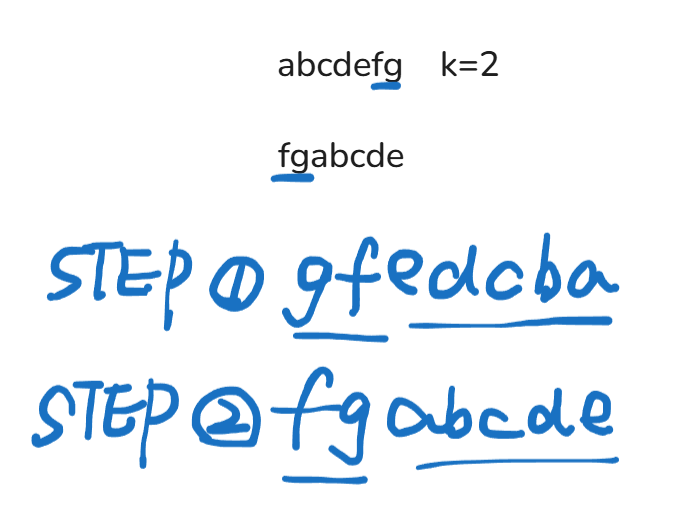 abcdefg k=2
fgabcde
STEP ① gfedcba
STEP ② fgabcde